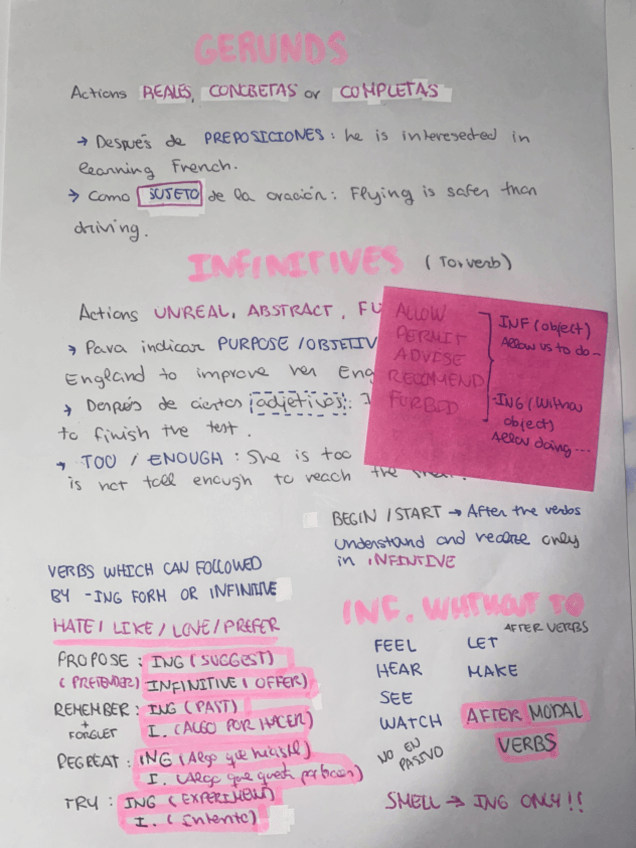 GERUNDS
Actions REALES, CONCRETAS or COMPLETAS
→ Después de PREPOSICIONES: he is interesected in
learning French.
→ Como SUJETO de la oración: Flying is safer than
driving.
INFINITIVES (To+verb)
Actions UNREAL, ABSTRACT, FU
→ Para indicar PURPOSE/OBJETIV
England to improve her Eng
→ Después de ciertos adjetivos: I
to finish the test.
→ TOO / ENOUGH: She is too
is not tall enough to reach the
ALLOW
PERMIT
ADVISE
RECOMEND
FORBID
INF (object)
Allow us to do -
-ING (Withou
object)
Allow doing ...
BEGIN / START → After the verbs
understand and realize only
in INFINTIVE
VERBS WHICH CAN FOLLOWED
BY -ING FORM OR INFINITIVE
HATE / LIKE / LOVE / PREFER
PROPOSE: ING (SUGGEST)
(PRETENDER) INFINITIVE (OFFER)
REMEMBER: ING (PAST)
+
FORGUET I. (ALGO POR HACER)
REGREAT: ING (Algo que hiciste)
I. (Algo que queda por hacer)
TRY: ING (EXPERIMENT)
I. (Intento)
INF. WHITHOUT TO
AFTER VERBS
FEEL LET
HEAR MAKE
SEE
WATCH
NO EN
PASIVO
AFTER MODAL
VERBS
SMELL → ING ONLY!!